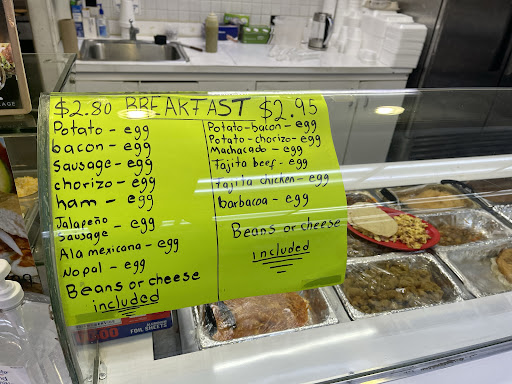 $2.80 BREAKFAST $2.95
Potato - egg
bacon - egg
Sausage - egg
chorizo - egg
ham - egg
Jalapeño
Sausage - egg
Ala mexicana - egg
Nopal - egg
Beans or cheese
included
Potato-bacon-egg
Potato-chorizo-egg
Machacado - egg
Fajita beef - egg
fajita chicken - egg
barbacoa - egg
Beans or cheese
included
FOIL SHEETS